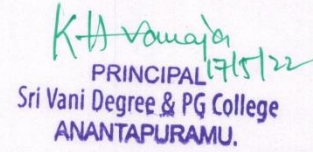 17/5/22
PRINCIPAL
Sri Vani Degree & PG College
ANANTAPURAMU.